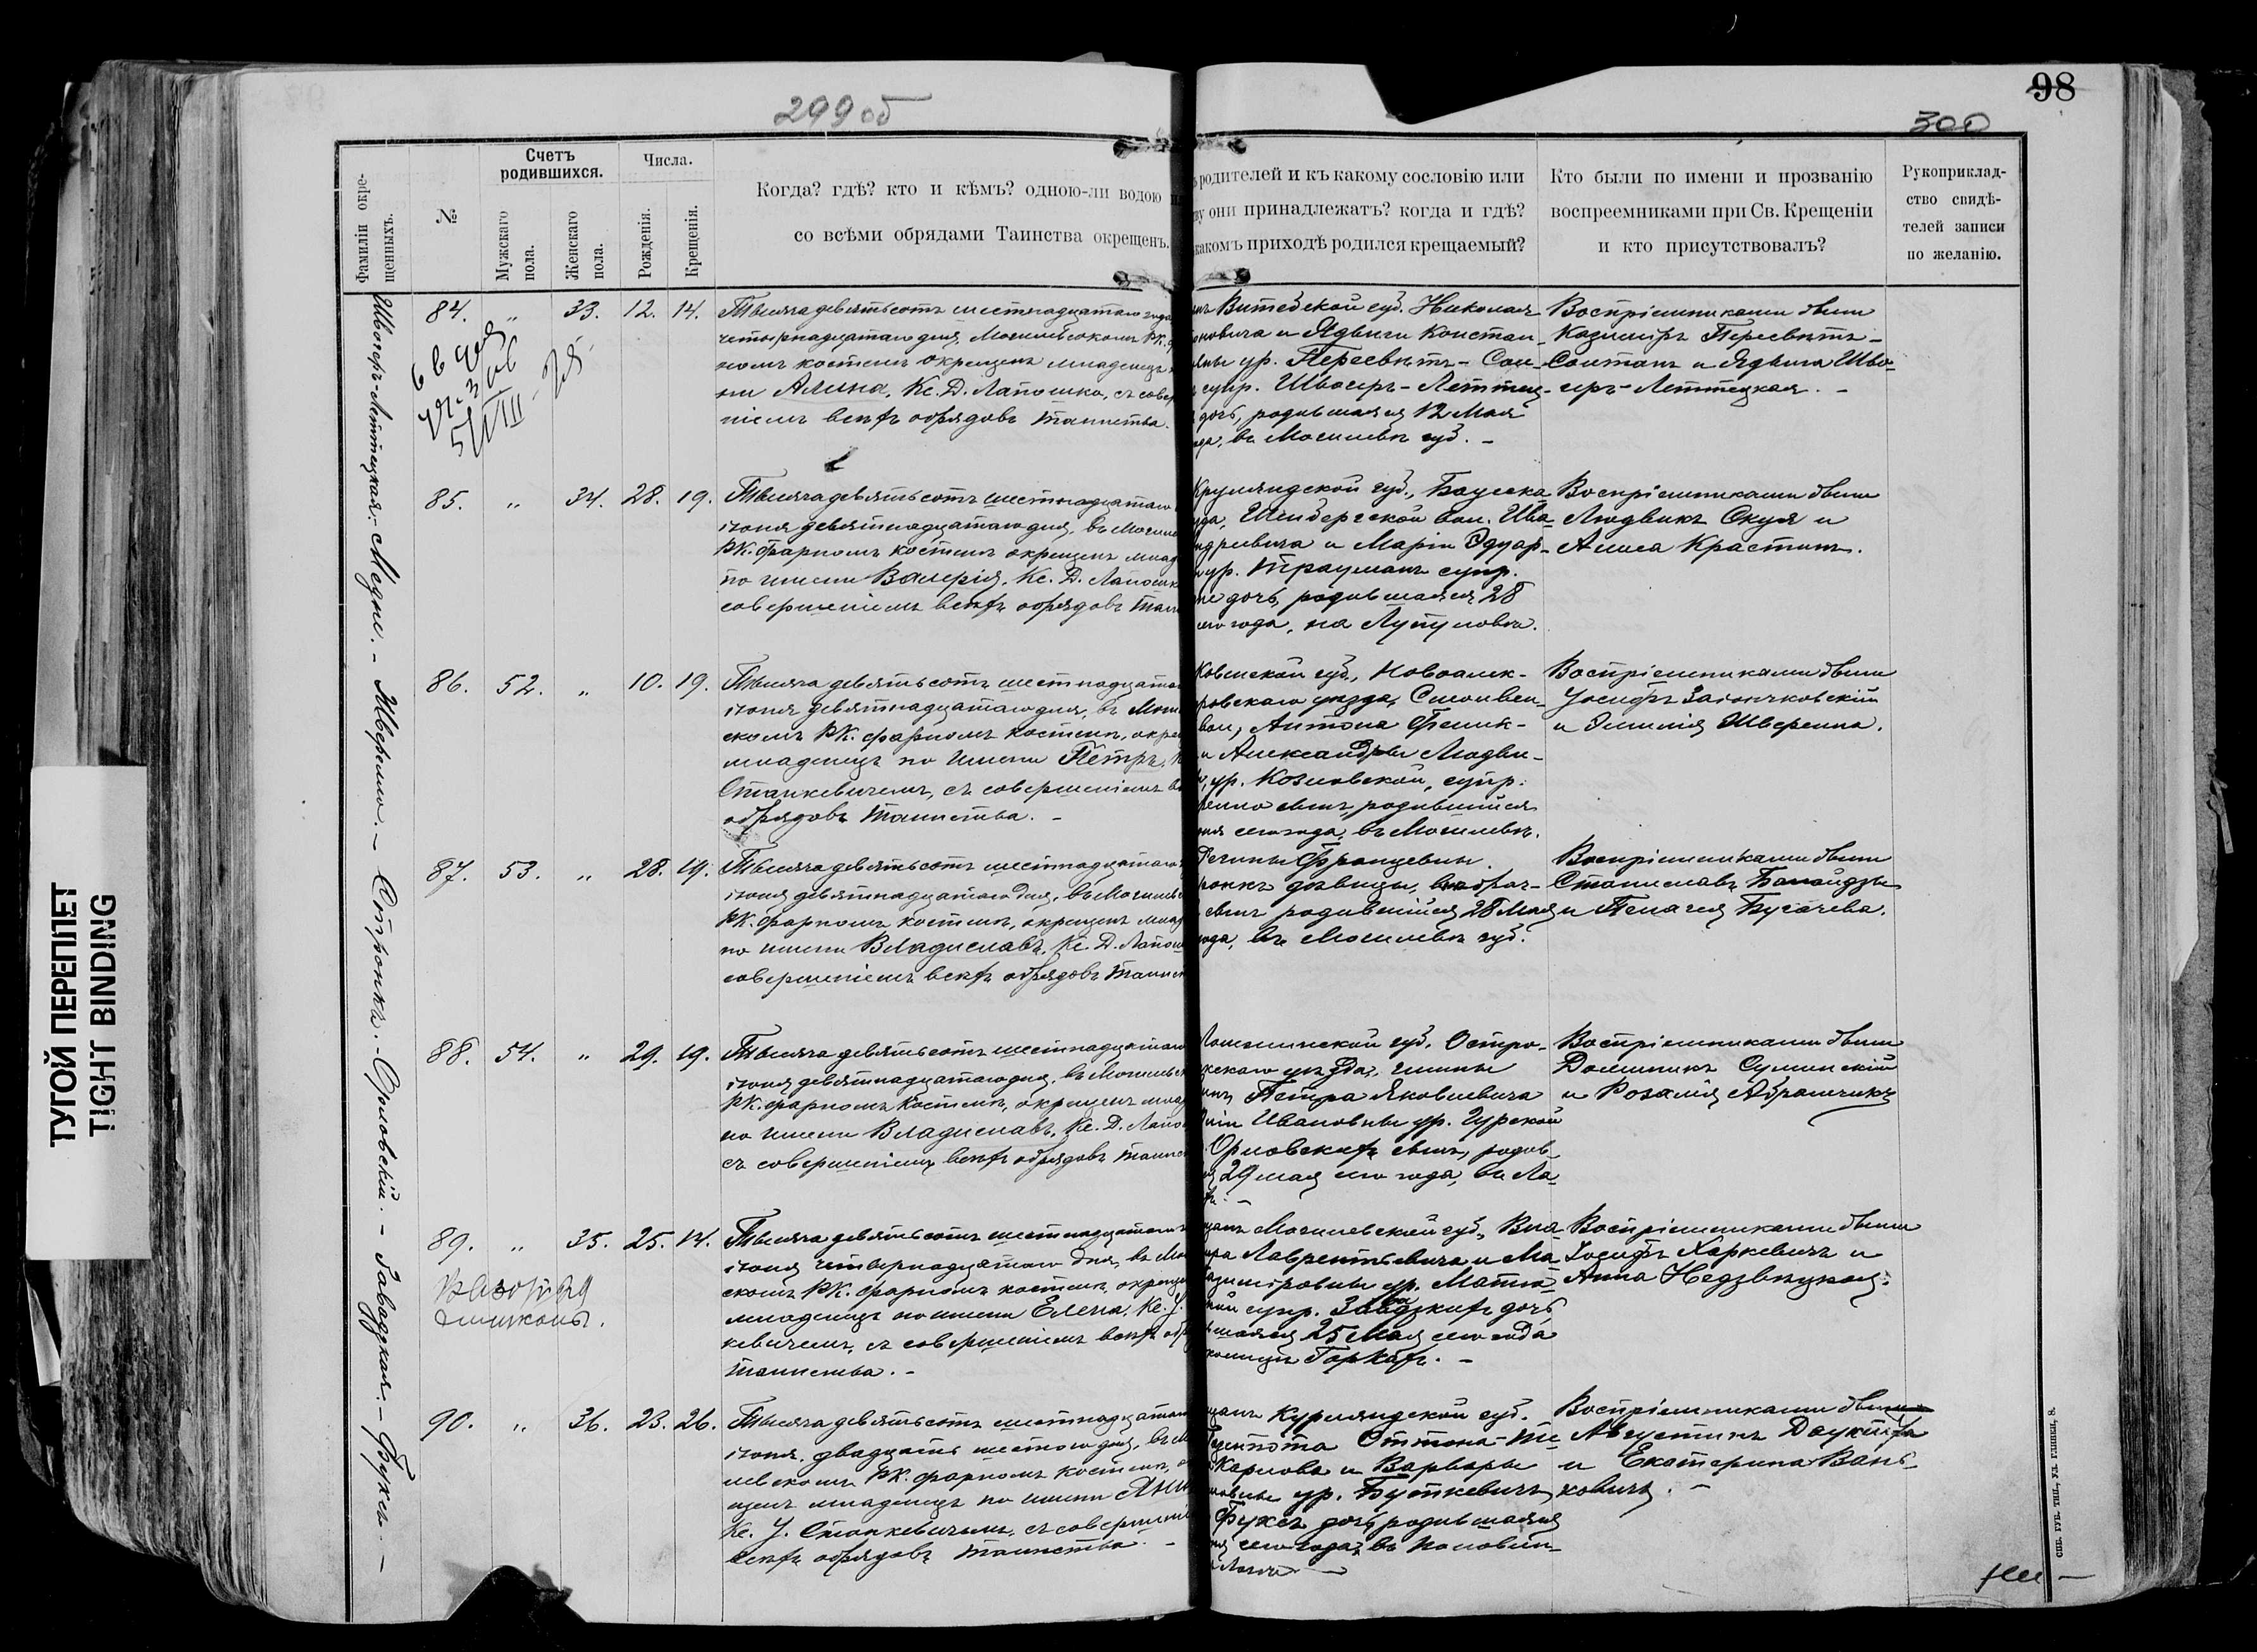 98
299 об
300
ТУГОЙ ПЕРЕПЛЕТ
TIGHT BINDING
Фамиліи окре-
щенныхъ.
№
Счетъ
родившихся.
Мужскаго
пола.
Женскаго
пола.
Числа.
Рожденія.
Крещенія.
Когда? гдѣ? кто и кѣмъ? одною-ли водою
со всѣми обрядами Таинства окрещенъ.
родителей и къ какому сословію или
они принадлежатъ? когда и гдѣ?
какомъ приходѣ родился крещаемый?
Кто были по имени и прозванію
воспреемниками при Св. Крещеніи
и кто присутствовалъ?
Рукоприклад-
ство свидѣ-
телей записи
по желанію.
84. „ 33. 12. 14.
Тысяча девятьсотъ шестнадцатаго года
четырнадцатаго дня, Могилевскомъ РК.
номъ костелѣ окрещенъ младенецъ
ни Алина, Кс. Д. Лапошко, съ совер
ніемъ всѣхъ обрядовъ таинства.
Витебской губ. Николая
овича и Ядвиги Констан-
ур. Пересвѣтъ-Сол-
супр. Швогеръ-Леттец-
дочь, родившаяся 12 Мая
въ Могилевѣ губ. -
Воспріемниками были
Казиміръ Пересвѣтъ-
Солтанъ и Ядвига Шво-
геръ-Леттецкая. -
85. „ 34. 28. 19.
Тысяча девятьсотъ шестнадцатаго
іюня девятнадцатаго дня, въ Могиле
РК. фарномъ костелѣ окрещенъ млад
по имени Валерія, Кс. Д. Лапошк
совершеніемъ всѣхъ обрядовъ таин
Курляндской губ., Бауска-
вол. Ива-
ндреевича и Маріи Эдуар-
ур. Трауманъ супр.
дочь, родившаяся 28
его года, на Луполовѣ.
Воспріемниками были
Людвикъ Скуя и
Алиса Крастинь.
86. 52. „ 10. 19.
Тысяча девятьсотъ шестнадцата
іюня девятнадцатаго дня, въ Моги
скомъ РК. фарномъ костелѣ, окре
младенецъ по имени Петръ,
Станкевичемъ, съ совершеніемъ в
обрядовъ таинства. -
Ковенской губ., Новоалек-
ровскаго уѣзда,
вол, Антона Фелик-
и Александры Людви-
ур. Козловской, супр.
сынъ, родившійся
сего года, въ Могилевѣ.
Воспріемниками были
Іосифъ Заіончковскій
и Эмилія Шверелла.
87. 53. „ 28. 19.
Тысяча девятьсотъ шестнадцатаго
іюня девятнадцатаго дня, въ Могилев
РК. фарномъ костелѣ, окрещенъ млад
по имени Владиславъ, Кс. Д. Лапош
совершеніемъ всѣхъ обрядовъ таинст
Францевны
дѣвицы, внѣбрач-
сынъ родившійся 28 Мая
года, въ Могилевѣ губ.
Воспріемниками были
Станиславъ
и Пелагея Бугачева.
88. 54. „ 29. 19.
Тысяча девятьсотъ шестнадцатаго
іюня девятнадцатаго дня, въ Могилевск
РК. фарномъ костелѣ, окрещенъ млад
по имени Владиславъ, Кс. Д. Лапо
съ совершеніемъ всѣхъ обрядовъ таинст
Ломжинской губ. Остро-
скаго уѣзда, гмины
Петра Яковлевича
Ивановны ур. Гурской
Орловскихъ сынъ, родив-
29 мая сего года, въ
Воспріемниками были
Доминикъ Сулинскій
и Розалія Абрамчикъ
89. „ 35. 25. 14.
Тысяча девятьсотъ шестнадцатаго
іюня четырнадцатаго дня, въ Мо
скомъ РК. фарномъ костелѣ, окреще
младенецъ по имени Елена, Кс. У.
кевичемъ, съ совершеніемъ всѣхъ обр
таинства. -
Могилевской губ., Вла-
Лаврентьевича и Ма-
зиміровны ур.
супр. Завадзкихъ дочь,
шаяся 25 Мая сего года
Горкахъ. -
Воспріемниками были
Іосифъ Харкевичъ и
Анна Недзвѣцкая.
90. „ 36. 23. 26.
Тысяча девятьсотъ шестнадцатаго
іюня, двадцать шестого дня, въ М
левскомъ РК. фарномъ костелѣ, о
щенъ младенецъ по имени
Кс. У. Станкевичемъ, съ совершені
всѣхъ обрядовъ таинства. -
Курляндской губ.
Карлова и Варвары
ур. Буткевичъ,
Фуксъ дочь, родившаяся
сего года, въ
Воспріемниками были
Августинъ
и Екатерина Вань-
ковичъ. -
Швогеръ-Леттецкая. - - Шверелло. - - Орловскій. - Завадзкая. - Фуксъ. -
СПБ. ГУБ. ТИП., УЛ. ГЛИНКИ, 8.